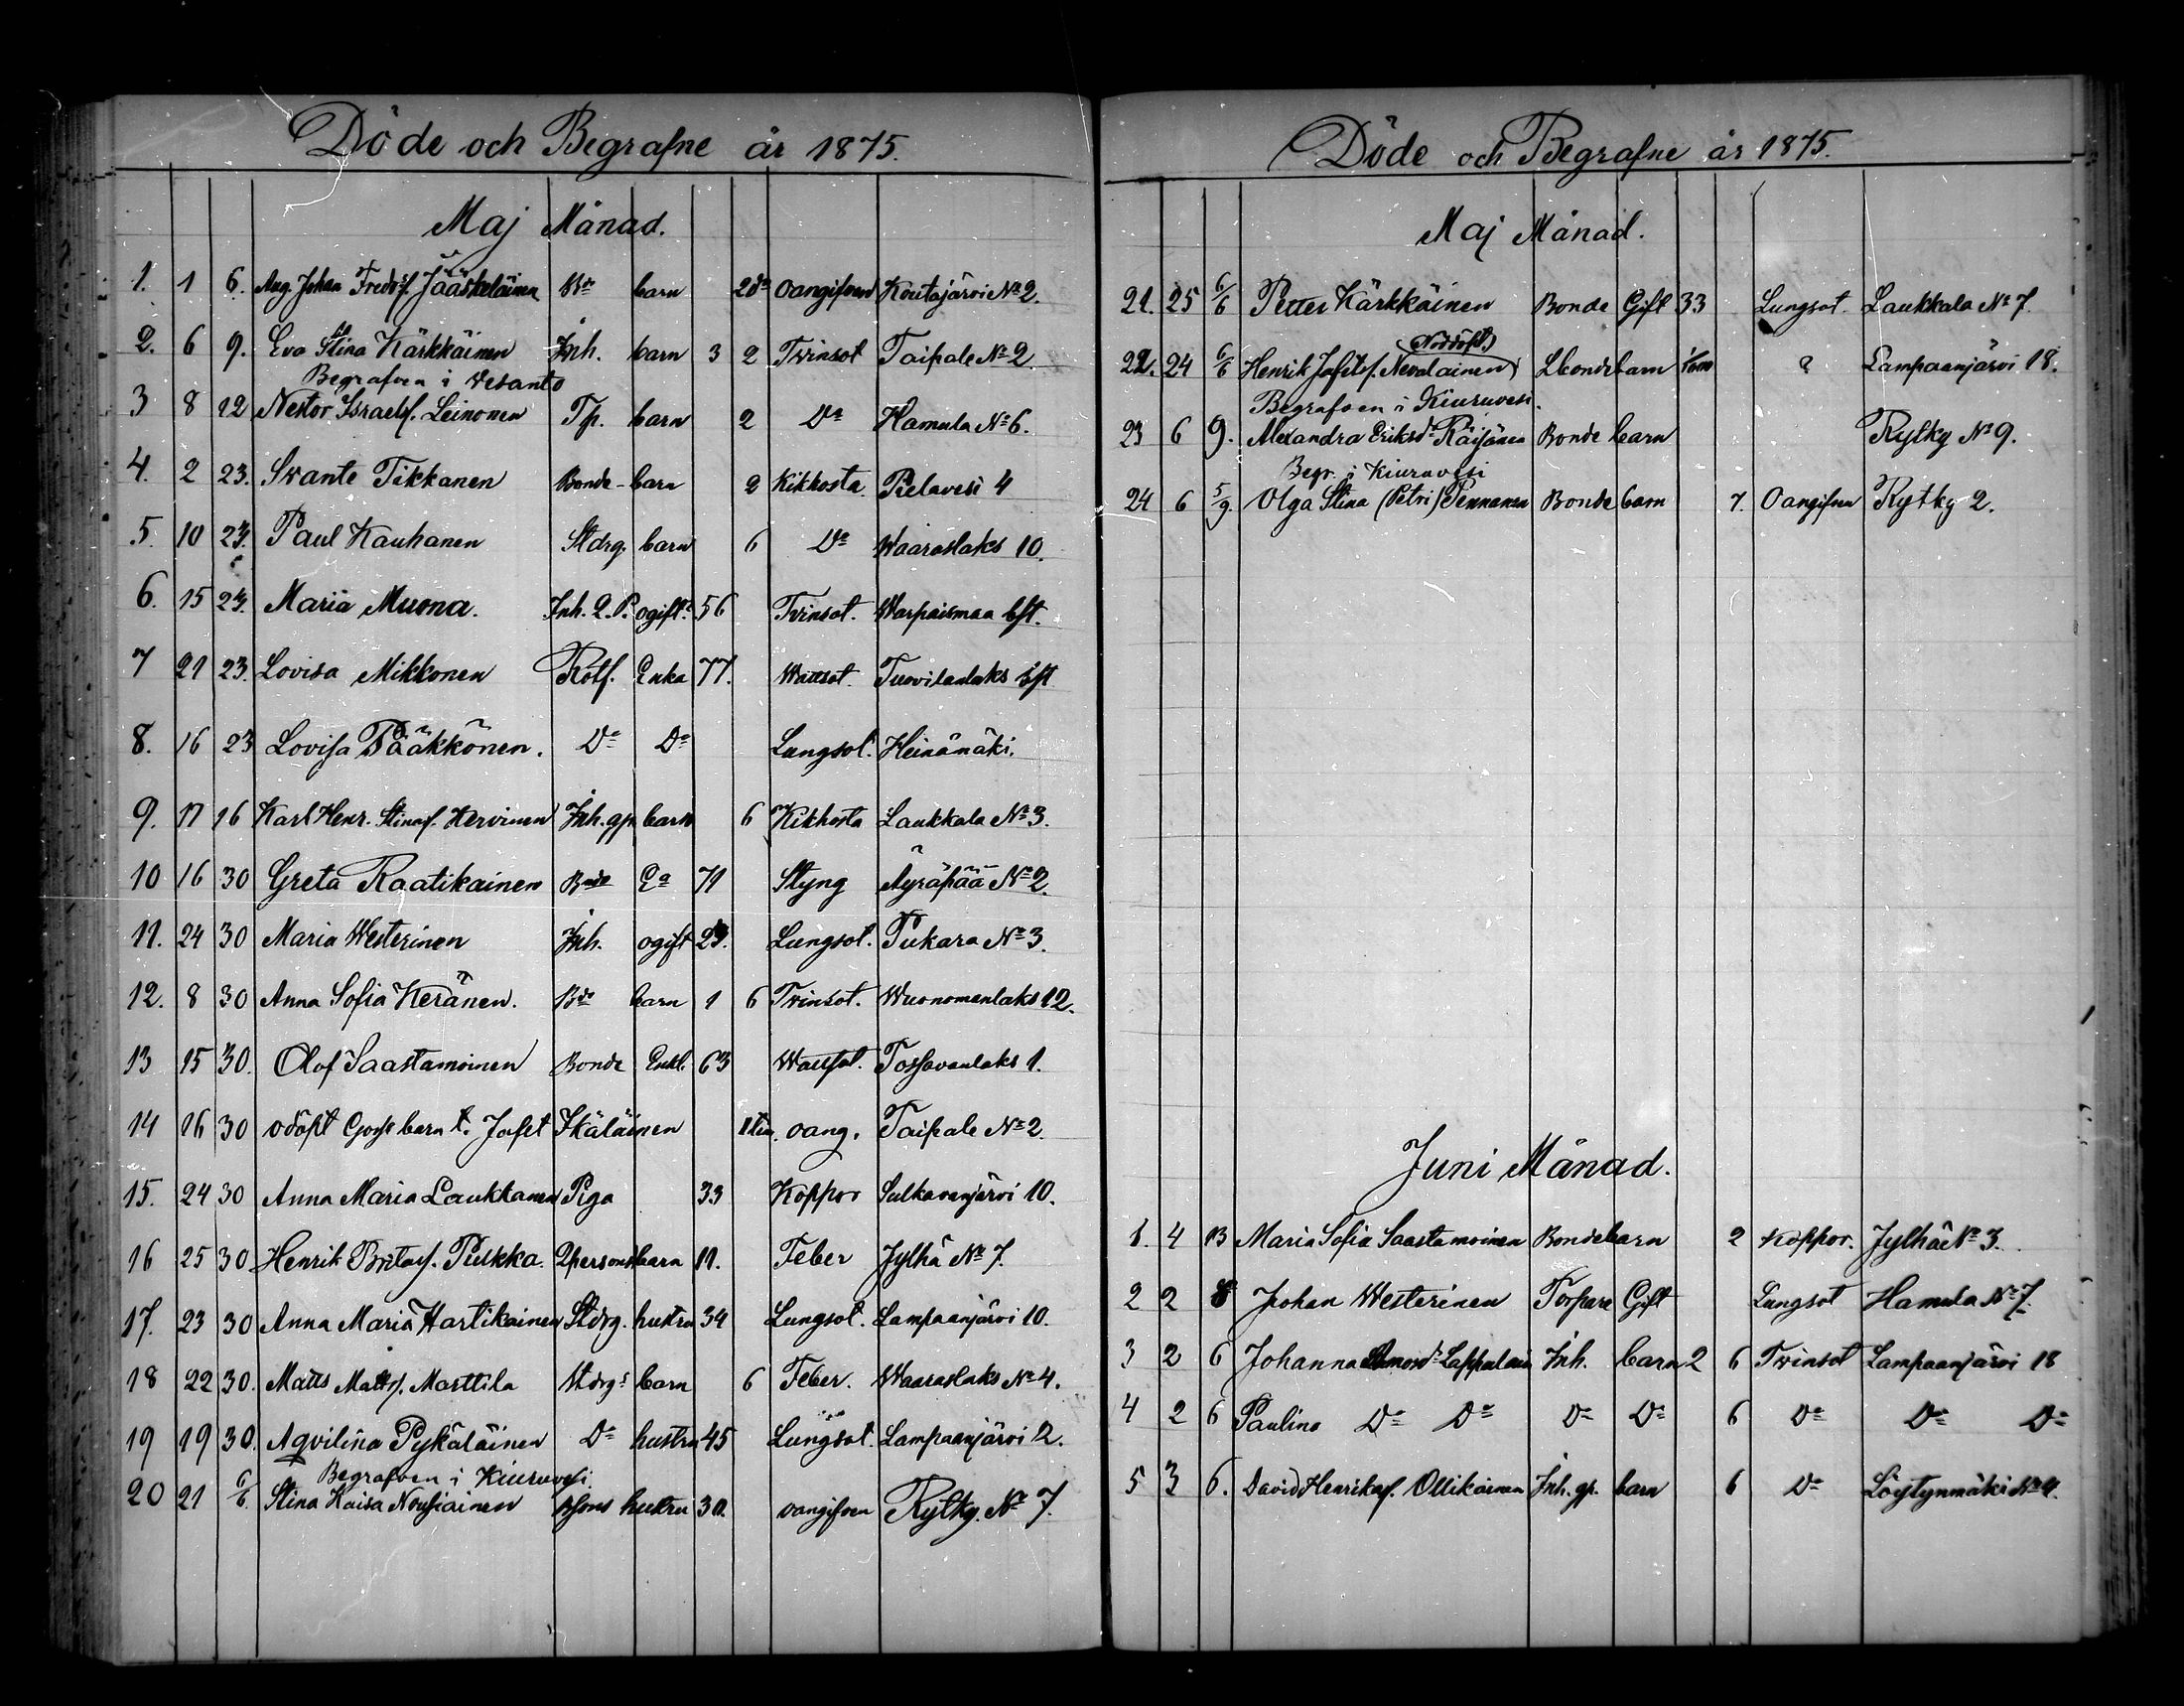 Döde och Begrafne år 1875.
Maj Månad.
1. 1 6. Aug. Johan Fredr:f. Jääskeläinen Bde barn 2 dr oangifven Koutajärvi No 2.
2. 6 9. Eva Stina Kärkkäinen Inh. barn 3 2 Tvinsot Taipale No 2.
Begrafven i Vesanto
3 8 12 Nestor Israelsf. Leinonen Tp. barn 2 Do Hamula No 6.
4. 2 23. Svante Tikkanen Bonde- barn 2 Kikhosta Pielavesi 4
5. 10 24. Paul Kauhanen Stdrg. barn 6 Do Waaraslaks 10.
6. 15 24. Maria Muona. Inh. Q.P. ogift. 56 Tvinsot. Warpaismaa bft.
7 21 23. Lovisa Mikkonen Rotf. Enka 77. Wattsot. Tuovilanlaks bft
8. 16 23 Lovisa Pääkkönen. Do Do Lungsot. Heinämäki.
9. 17 16 Karl Henr. Stinasf. Hervinen Inh. gp barn 6 Kikhosta Laukkala No 3.
10 16 30 Greta Raatikainen Bnde Ea 71 Styng Äyräpää No 2.
11. 24 30 Maria Westerinen Inh. ogift 23. Lungsot. Pukara No 3.
12. 8 30 Anna Sofia Keränen. Bde barn 1 6 Tvinsot. Wuonomanlaks 12.
13 15 30. Olof Saastamoinen Bonde Enkl. 63 Wattsot. Tossavanlaks 1.
14 16 30 odöpt Gosse barn t. Jafet Ikäläinen 1 tim. oang. Taipale No 2.
15. 24 30 Anna Maria Laukkanen Piga 33 Koppor Sulkavanjärvi 10.
16 25 30 Henrik Britasf. Pulkka. Qperson barn 11. Feber Jylhä No 7.
17. 23 30 Anna Maria Hartikainen Stdrg. hustru 34 Lungsot. Lampaanjärvi 10.
18 22 30. Matts Mattsf. Marttila Stdrgs barn 6 Feber. Waaraslaks No 4.
19 19 30. Aqvilina Pykäläinen Do hustru 45 Lungsot. Lampaanjärvi 12.
Begrafven i Kiuruvesi
20 21 6/6 Stina Kaisa Nousiainen hustru 30. oangifven Rytky. No 7.
Döde och Begrafne år 1875.
Maj Månad.
21. 25 6/6 Petter Kärkkäinen Bonde Gift 33 Lungsot. Laukkala No 7.
(Nöddöpt.)
22. 24 6/6 Henrik Jafetsf. Nevalainen Lbonde barn ? Lampaanjärvi 18.
Begrafven i Kiuruvesi.
23 6 9. Alexandra Eriksdr Räisänen Bonde barn Rytky No 9.
Begr. i Kiuruvesi
24 6 5/9. Olga Stina (Petri) Pennanen Bonde barn 7. Oangifven Rytky 2.
Juni Månad.
1. 4 13 Maria Sofia Saastamoinen Bonde barn 2 Koppor. Jylhä No 3.
2 2 8 Johan Westerinen Torpare Gift Lungsot Hamula No 7.
3 2 6 Johanna Lappalain Inh. barn 2 6 Tvinsot Lampaanjärvi 18
4 2 6 Paulina Do Do Do Do 6 Do Do Do
5 3 6. David Henriksf. Ollikainen Inh. gp. barn 6 Do Löytynmäki No 4.